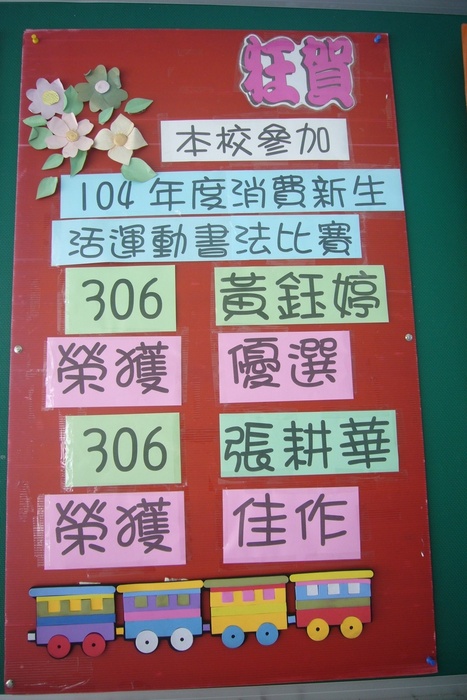 狂賀
本校參加
104年度消費新生
活運動書法比賽
306 黃鈺婷
榮獲 優選
306 張耕華
榮獲 佳作